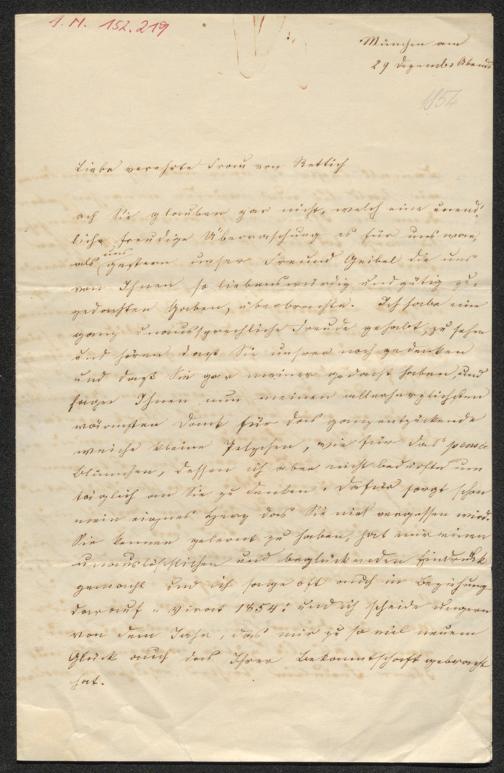 I.N. 152.219
München am
29 Dezember Abends
1854
Liebe verehrte Frau von Rettich
ach Sie glauben gar nicht, welch eine unend-
liche freudige Überraschung es für uns war,
als uns gestern unser Freund Geibel die uns
von Ihnen so liebenswürdig und gütig zu-
gedachten Gaben, überbrachte. Ich habe eine
ganz unaussprechliche Freude gehabt, zu sehn
und hören daß Sie unsrer noch gedenken
und daß Sie gar meiner gedacht haben, und
sage Ihnen nun meinen allerherzlichsten
wärmsten Dank für das ganz entzückende
weiche kleine Pelzchen, wie für das
Blümchen, dessen ich aber nicht bedürfte um
täglich an Sie zu denken. Dafür sorgt schon
mein eignes Herz das Sie nicht vergessen wird.
Sie kennen gelernt zu haben, hat mir einen
unauslöschlichen und beglückenden Eindruck
gemacht und ich sage oft auch in Beziehung
darauf "Vivat 1854" und ich scheide ungern
von dem Jahr, das mir zu so viel neuem
Glück auch das Ihrer Bekanntschaft gebracht
hat.